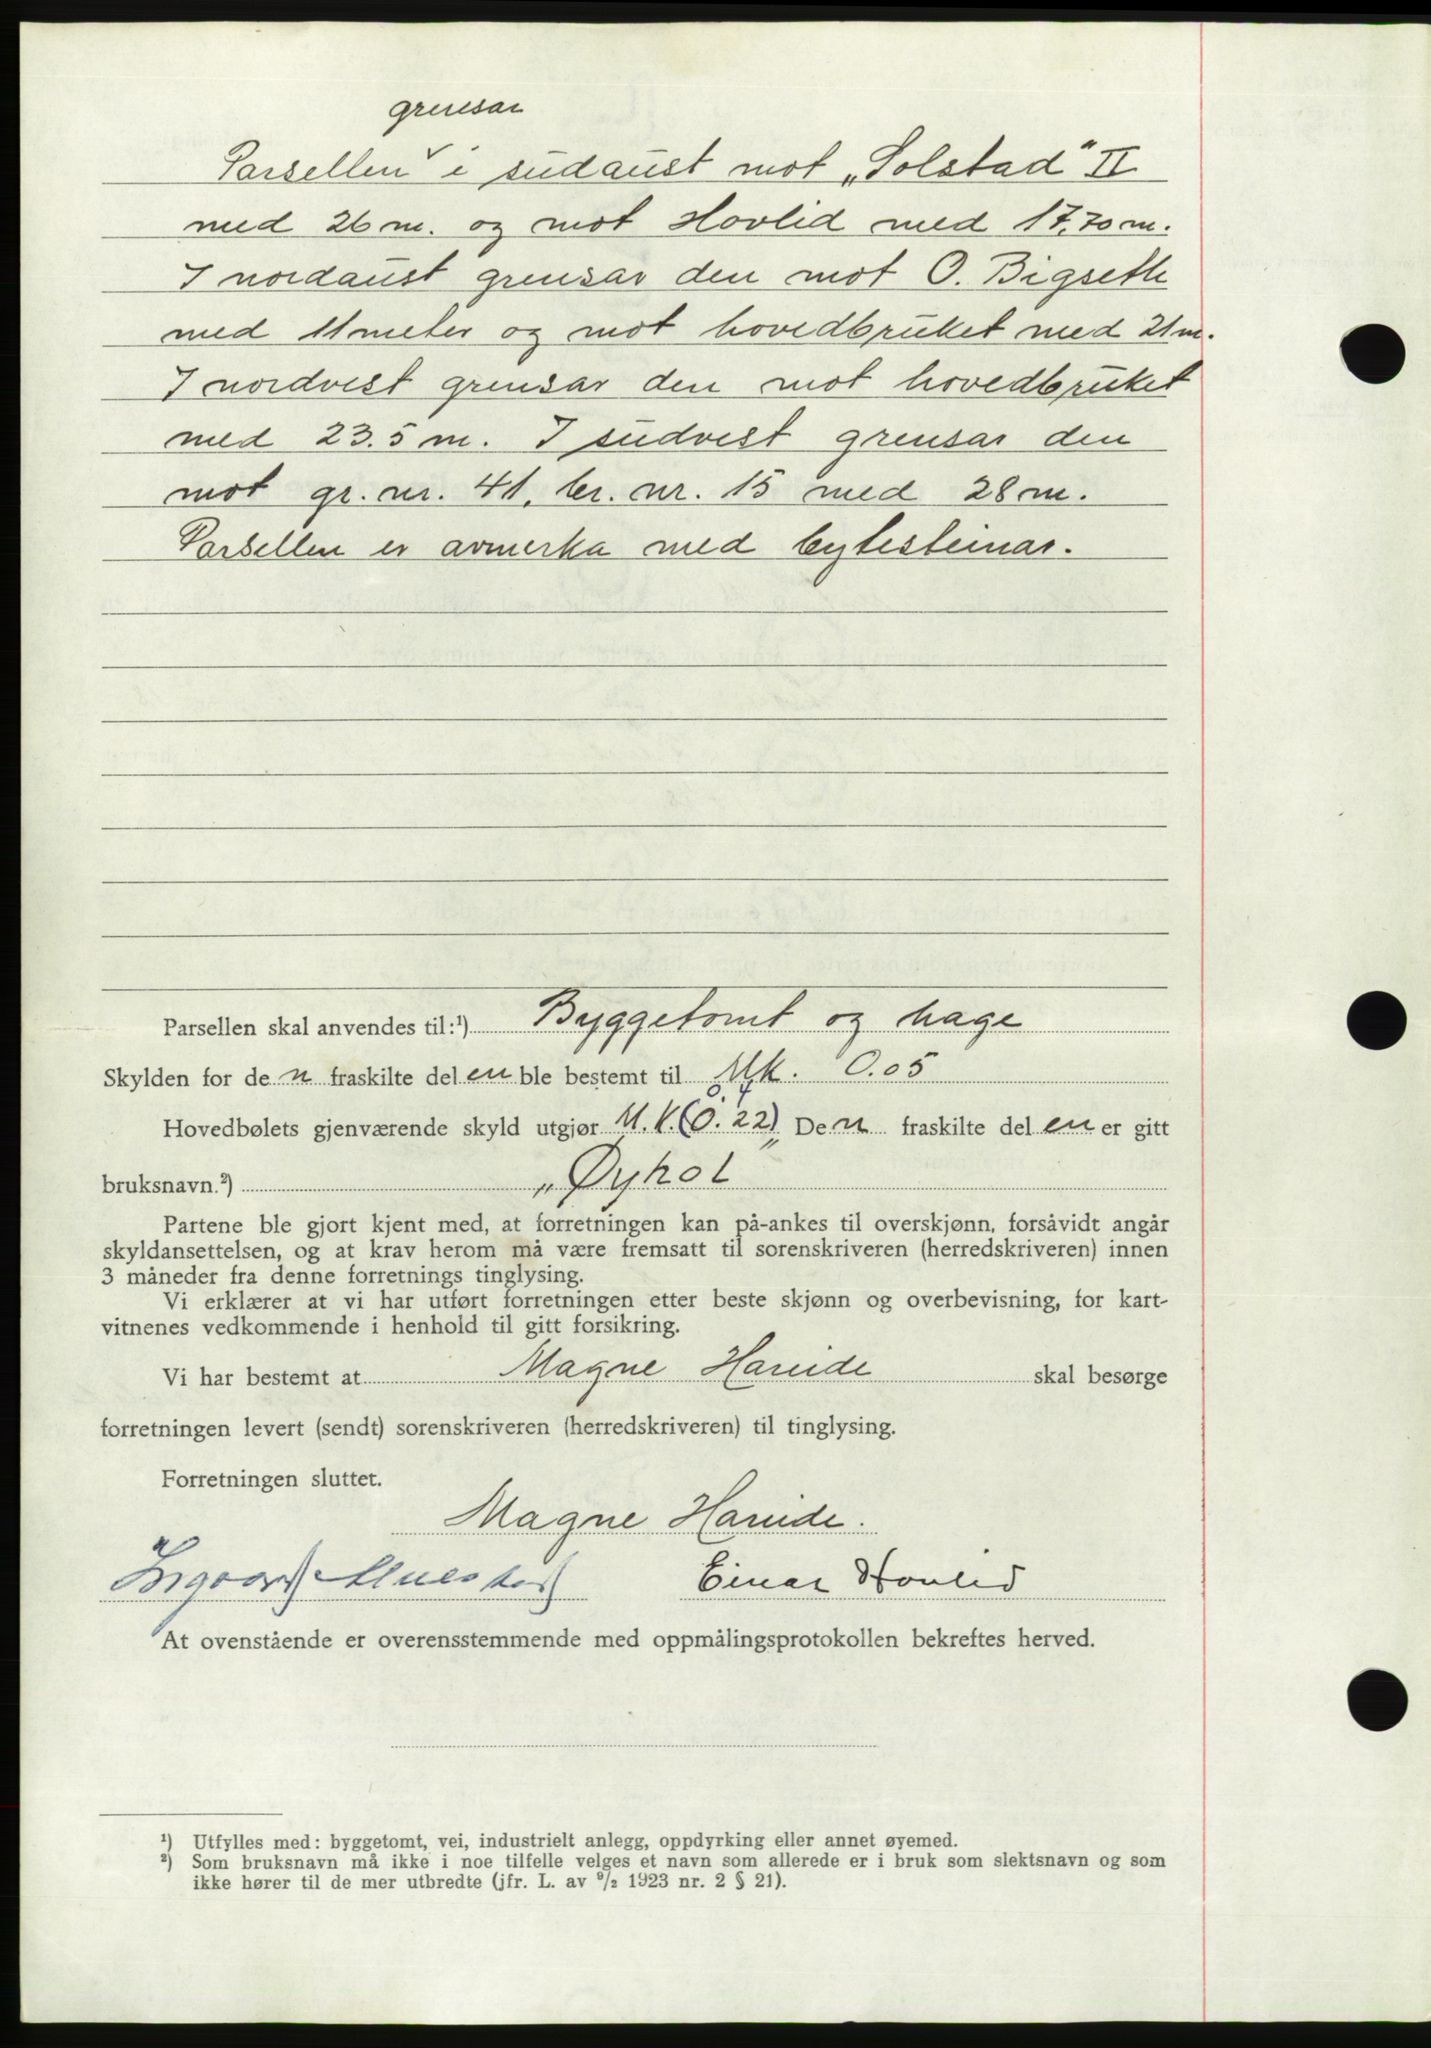 grensar
Parsellen ˅ i sudaust mot „Solstad" II
med 26 m. og mot Hovlid med 17,70 m.
I nordaust grensar den mot O. Bigseth
med 11 meter og mot hovedbruket med 21 m.
I nordvest grensar den mot hovedbruket
med 23.5 m. I sudvest grensar den
mot gr. nr. 41, br. nr. 15 med 28 m.
Parsellen er avmerka med bytesteinar.
Parsellen skal anvendes til:¹) Byggetomt og hage
Skylden for de n fraskilte del en ble bestemt til Mk. 0.05
0. 4
Hovedbølets gjenværende skyld utgjør M.K. (0.22) De n fraskilte del en er gitt
bruksnavn.²) „Øyhol"
Partene ble gjort kjent med, at forretningen kan på-ankes til overskjønn, forsåvidt angår
skyldansettelsen, og at krav herom må være fremsatt til sorenskriveren (herredskriveren) innen
3 måneder fra denne forretnings tinglysing.
Vi erklærer at vi har utført forretningen etter beste skjønn og overbevisning, for kart-
vitnenes vedkommende i henhold til gitt forsikring.
Vi har bestemt at Magne Hareide skal besørge
forretningen levert (sendt) sorenskriveren (herredskriveren) til tinglysing.
Forretningen sluttet.
Magne Hareide.
Einar Hovlid
At ovenstående er overensstemmende med oppmålingsprotokollen bekreftes herved.
¹) Utfylles med: byggetomt, vei, industrielt anlegg, oppdyrking eller annet øyemed.
²) Som bruksnavn må ikke i noe tilfelle velges et navn som allerede er i bruk som slektsnavn og som
ikke hører til de mer utbredte (jfr. L. av ⁹/₂ 1923 nr. 2 § 21).